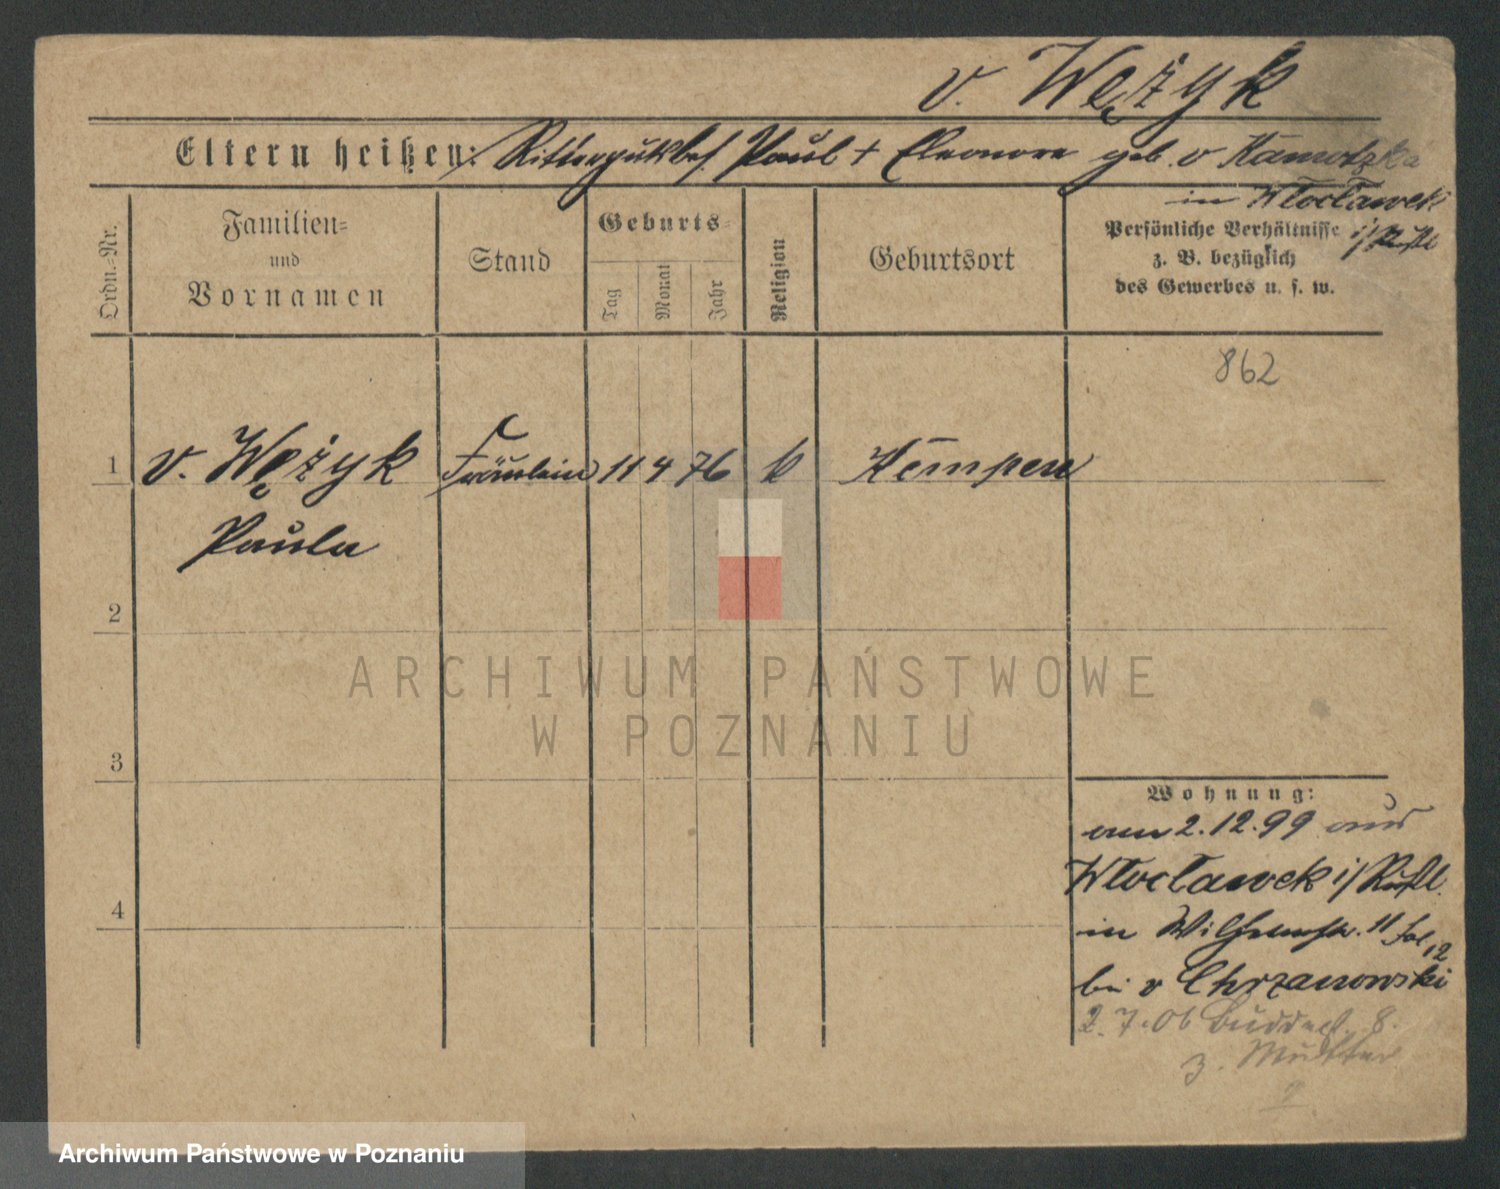 v. Wężyk
Eltern heißen: Rittergutsbes. Paul + Eleonore geb. v
in Włocławek
i/Rußl
Ordn.-Nr.
Familien-
und
Vornamen
Stand
Geburts-
Tag
Monat
Jahr
Religion
Geburtsort
Persönliche Verhältnisse
z. B. bezüglich
des Gewerbes u. s. w.
862
1 v. Wężyk Fräulein 11 4 76 k Kempen
Paula
2
3
4
Wohnung:
am 2.12.99 aus
Włocławek i/Rußl.
in Wilhelmstr. 11
bei v Chrzanowski
2.7.06 Buddest. 8.
z. Mutter
ARCHIWUM PAŃSTWOWE
W POZNANIU
Archiwum Państwowe w Poznaniu